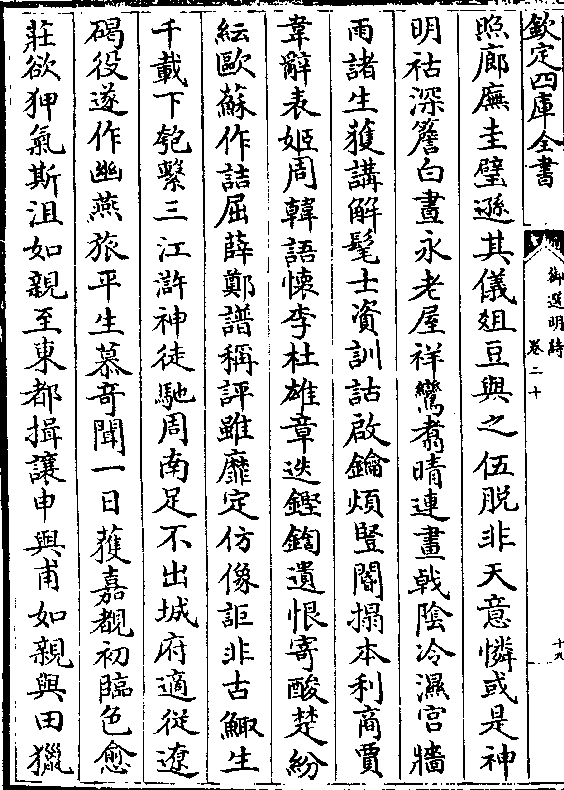 欽定四庫全書
御選明詩
卷二十
十九
照廊廡圭璧遜其儀俎豆與之伍脱非天意憐或是神
明祜深簷白晝永老屋祥鸞翥晴連畫㦸陰冷濕宫牆
雨諸生獲講解髦士資訓詁啟鑰煩豎閽搨本利商賈
韋辭表姬周韓語懐李杜雄章迭鏗鍧遺恨寄酸楚紛
紜歐蘇作詰屈薛鄭譜稱評雖靡定仿像詎非古鯫生
千載下匏繫三江滸神徒馳周南足不出城府適從遼
碣役遂作幽燕旅平生慕竒聞一日獲嘉覩初臨色愈
莊欲狎氣斯沮如親至東都揖讓申與甫如親與田獵